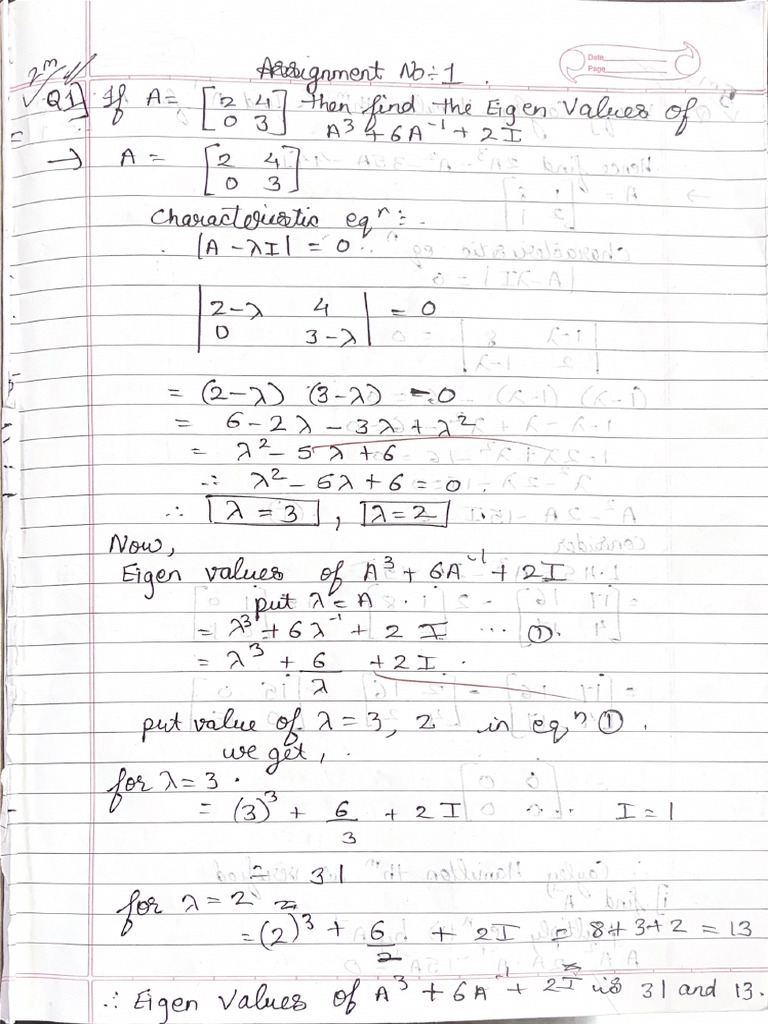 Assignment No:- 1 .
Date
Page
2m
Q1] If A = [2 4 0 3] then find the Eigen Values of
A³ + 6A⁻¹ + 2I
→ A = [2 4 0 3]
Characteristic eqⁿ :-
|A - λI| = 0
|2-λ 4| = 0
|0 3-λ|
= (2-λ) (3-λ) = 0
= 6 - 2λ - 3λ + λ²
= λ² - 5λ + 6
∴ λ² - 5λ + 6 = 0 .
∴ λ = 3 , λ = 2 .
Now,
Eigen values of A³ + 6A⁻¹ + 2I .
put λ = A .
= λ³ + 6λ⁻¹ + 2 I ... ①.
= λ³ + 6/λ + 2I .
put value of λ = 3, 2 in eqⁿ ① .
we get , .
for λ = 3 .
= (3)³ + 6/3 + 2I ... I = 1
= 31
for λ = 2
= (2)³ + 6/2 + 2I = 8 + 3 + 2 = 13
∴ Eigen Values of A³ + 6A⁻¹ + 2I is 31 and 13.